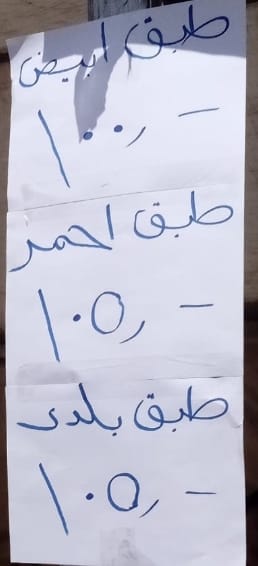 طبق ابيض
١٠٠,-
طبق احمر
١٠٥,-
طبق بلدى
١٠٥,-